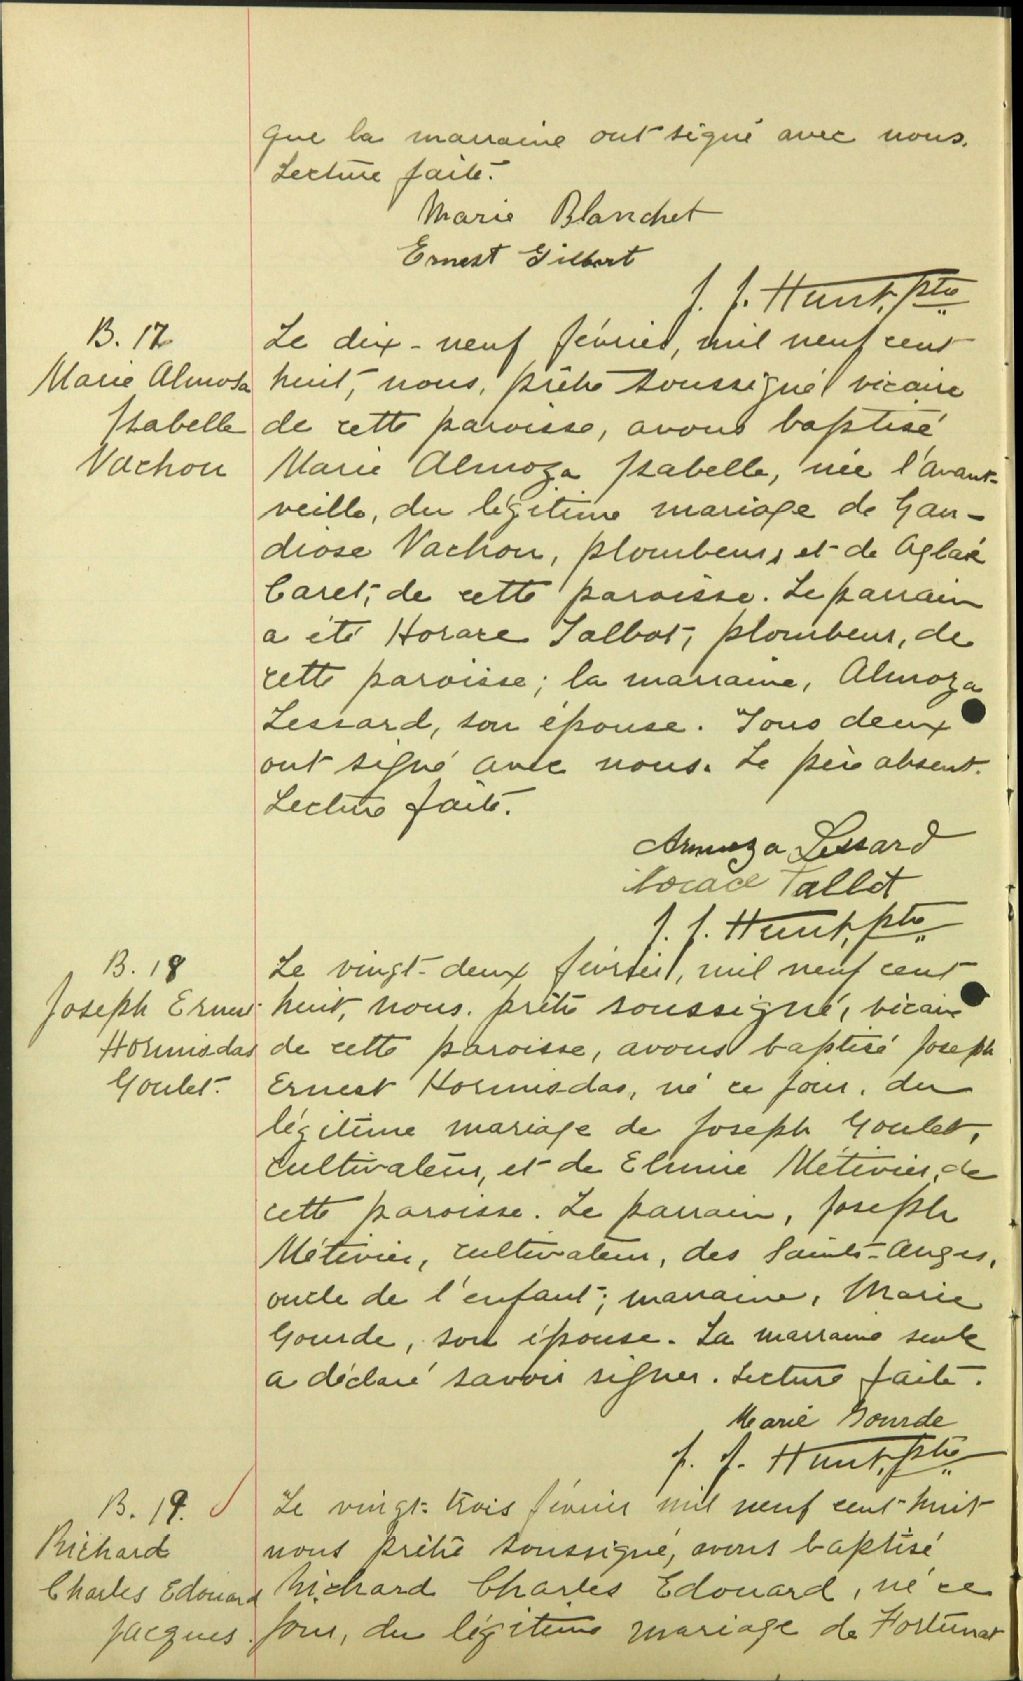 que la marraine ont signé avec nous.
Lecture faite.
Marie Blanchet
Ernest Gilbert
J. J. Hunt, ptre
B. 17
Marie Almosa
Isabelle
Vachon
Le dix-neuf février, mil neuf cent
huit, nous, prêtre soussigné vicaire
de cette paroisse, avons baptisé
Marie Almoza Isabelle, née l'avant-
veille, du légitime mariage de Gau-
diose Vachon, plombeur, et de Aglaé
Caret, de cette paroisse. Le parrain
a été Horace Talbot, plombeur, de
cette paroisse; la marraine, Almoza
Lessard, son épouse. Tous deux
ont signé avec nous. Le père absent.
Lecture faite.
Armoza Lessard
Horace Talbot
J. J. Hunt, ptre
B. 18
Joseph Ernest
Hormisdas
Goulet.
Le vingt-deux février, mil neuf cent
huit, nous, prêtre soussigné, vicaire
de cette paroisse, avons baptisé Joseph
Ernest Hormisdas, né ce jour, du
légitime mariage de Joseph Goulet,
cultivateur, et de Elmire Métivier, de
cette paroisse. Le parrain, Joseph
Métivier, cultivateur, des Saints-Anges,
oncle de l'enfant; marraine, Marie
Gourde, son épouse. La marraine seule
a déclaré savoir signer. Lecture faite.
Marie Gourde
J. J. Hunt, ptre
B. 19.
Richard
Charles Edouard
Jacques.
Le vingt-trois février mil neuf cent huit
nous prêtre soussigné, avons baptisé
Richard Charles Edouard, né ce
jour, du légitime mariage de Fortunat